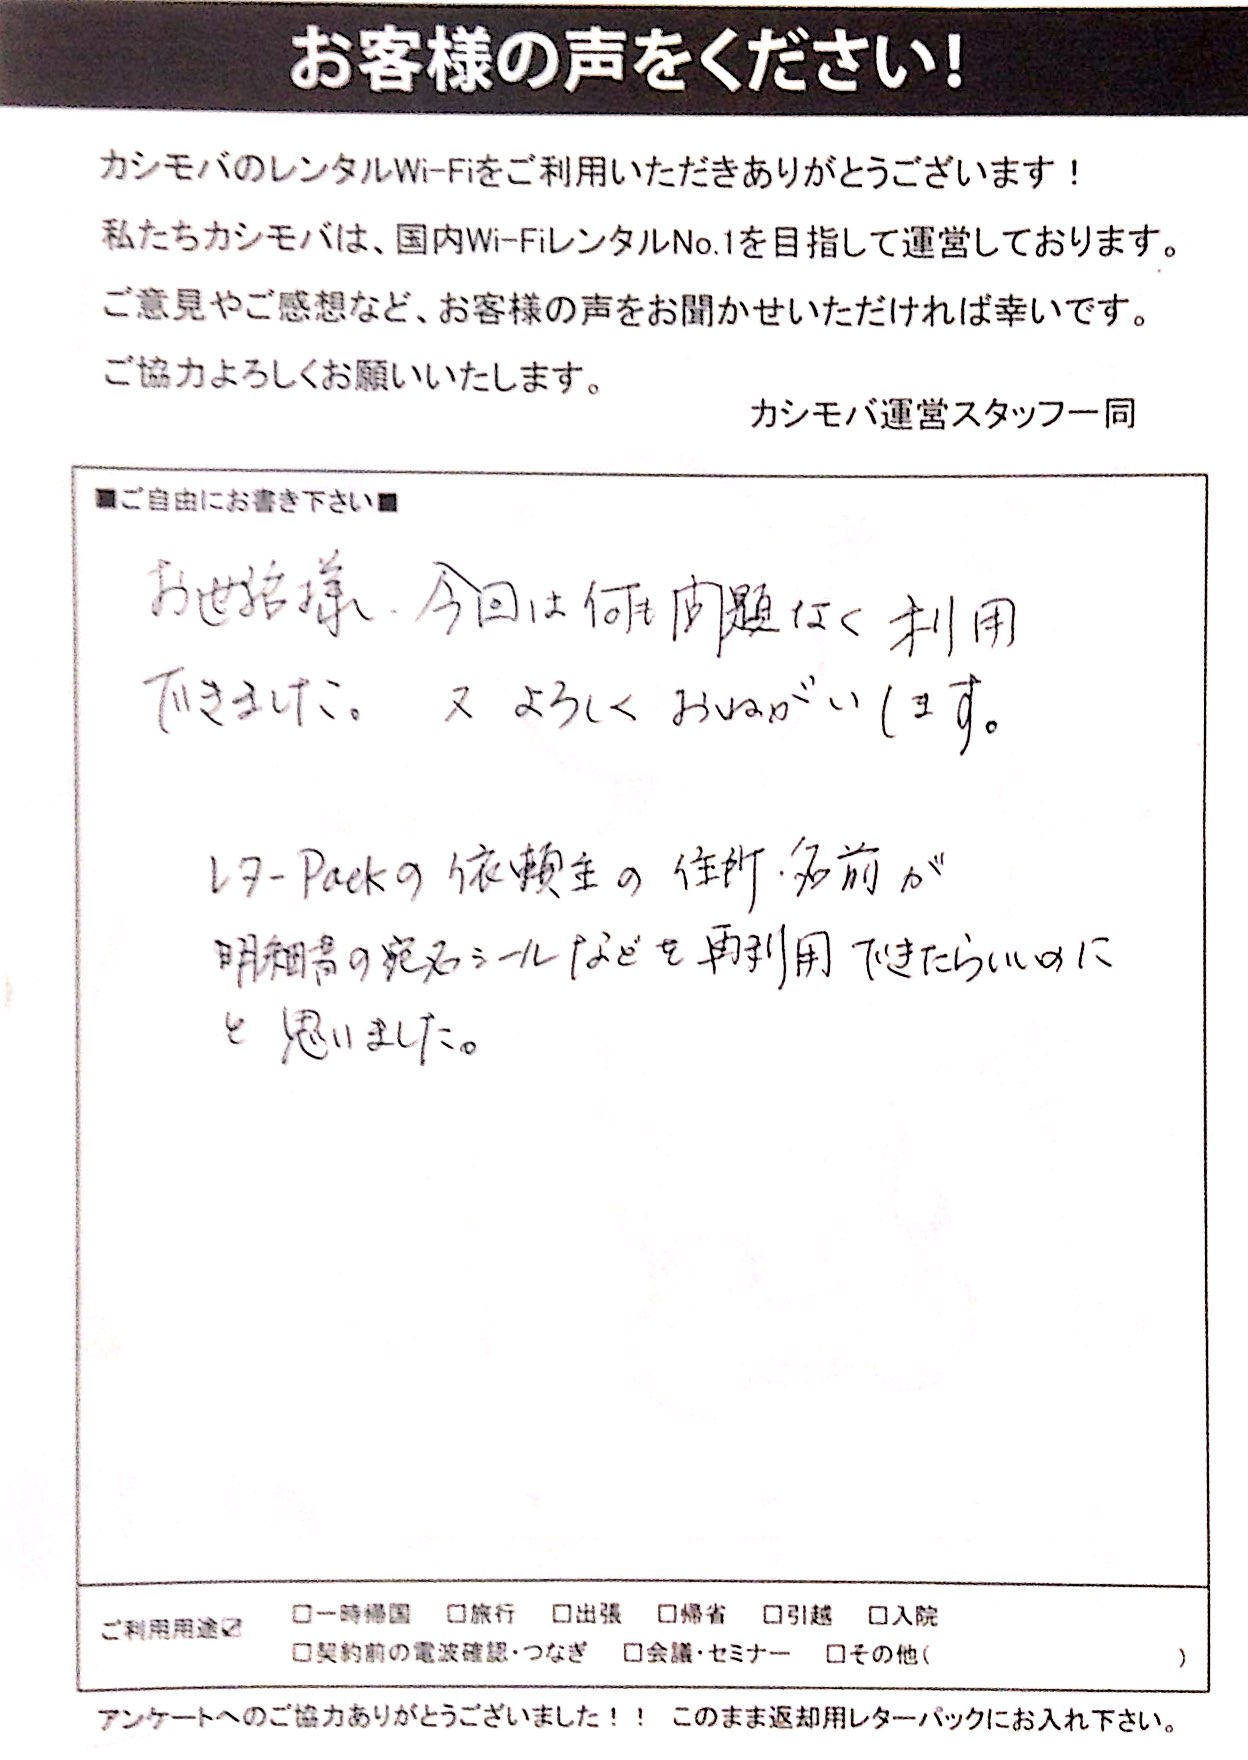 お客様の声をください!
カシモバのレンタルWi-Fiをご利用いただきありがとうございます！
私たちカシモバは、国内Wi-FiレンタルNo.1を目指して運営しております。
ご意見やご感想など、お客様の声をお聞かせいただければ幸いです。
ご協力よろしくお願いいたします。
カシモバ運営スタッフ一同
■ご自由にお書き下さい■
お世話様。今回は何も問題なく利用
できました。 又よろしくおねがいします。
レター Packの依頼主の住所・名前が
明細書の宛名シールなどを再利用できたらいいのに
と思いました。
ご利用用途☑ □一時帰国 □旅行 □出張 □帰省 □引越 □入院
□契約前の電波確認・つなぎ □会議・セミナー □その他( )
アンケートへのご協力ありがとうございました！！ このまま返却用レターパックにお入れ下さい。